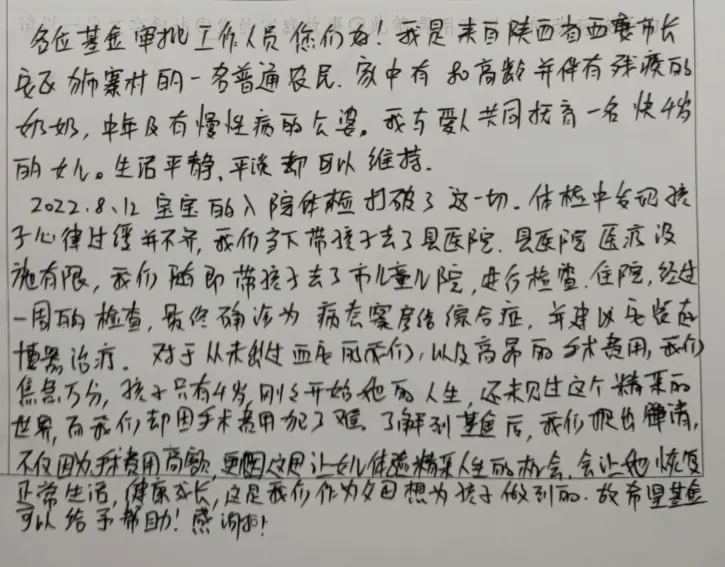 各位基金审批工作人员你们好！我是来自陕西省西安市长
安区狮寨村的一名普通农民。家中有80高龄并伴有残疾的
奶奶，中年及有慢性病的公婆。我与爱人共同抚育一名快4岁
的女儿。生活平静、平淡却可以维持。
2022.8.12宝宝的入院体检打破了这一切。体检中发现孩
子心律过缓并不齐，我们当下带孩子去了县医院。县医院医疗设
施有限，我们随即带孩子去了市儿童儿院，进行检查.住院，经过
一周的检查，最终确诊为 病态窦房结综合症，并建议安装起
搏器治疗。对于从未出过 的我们，以及高昂的手术费用，我们
焦急万分，孩子只有4岁，刚刚开始她的人生，还未见过这个精采的
世界，而我们却因手术费用犯了难。了解到基金后，我们提出申请，
不仅因为手术费用高额，更因这是让女儿体验精采人生的机会，会让她恢复
正常生活，健康成长，这是我们作为父母想为孩子做到的。故希望基金
可以给予帮助！感谢您！